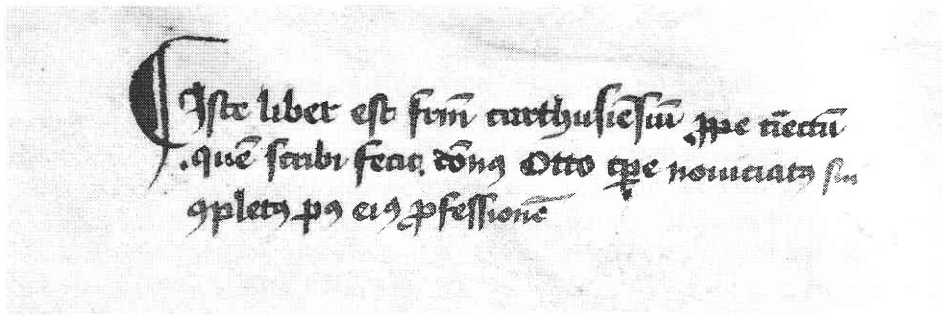 ¶ Iste liber est fr̄m carthusiēsiū ꝓpe tiectū
quē scribi fecit dōnꝰ Otto tꝑe nouiciatꝰ sui
ꝯpletꝰ pꝰ eiꝰ ꝓfessionē